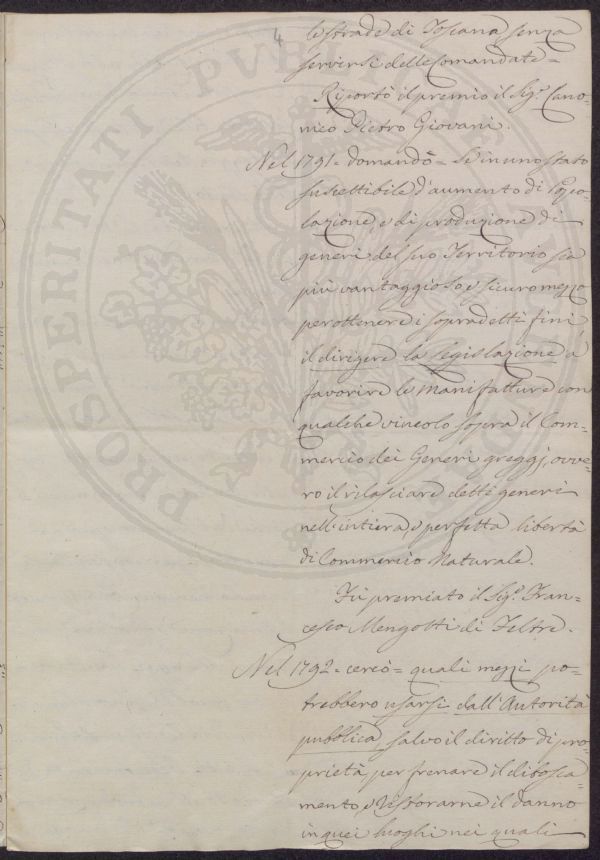 4
le strade di Toscana senza
servirsi delle Comandate =
Riportò il premio il Sig.r Cano=
nico Pietro Giovani.
Nel 1791 = domandò = Se in uno stato
suscettibile d'aumento di Popo=
lazione, e di produzione di
generi del suo Territorio sia
più vantaggioso, e sicuro mezzo
per ottenere i sopradetti fini
il dirigere la Legislazione a
favorire le Manifatture con
qualche vincolo sopra il Com=
mercio dei Generi greggj, ovve=
ro il rilasciare detti generi
nell'intiera, e perfetta libertà
di Commercio Naturale.
Fù premiato il Sig.r Fran=
cesco Mengotti di Feltre.
Nel 1792 = cercò = quali mezzi po=
trebbero usarsi dall'Autorità
pubblica, salvo il diritto di pro=
prietà per frenare il disosca=
mento, e ristorarne il danno
in quei luoghi nei quali
PROSPERITATI PVBLICAE